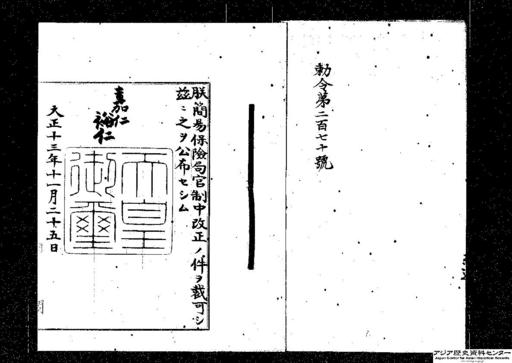 勅令第二百七十號
朕簡易保險局官制中改正ノ件ヲ裁可シ
茲ニ之ヲ公布セシム
嘉仁
裕仁
天皇
御璽
大正十三年十一月二十五日
アジア歴史資料センター
Japan Center for Asian Historical Records